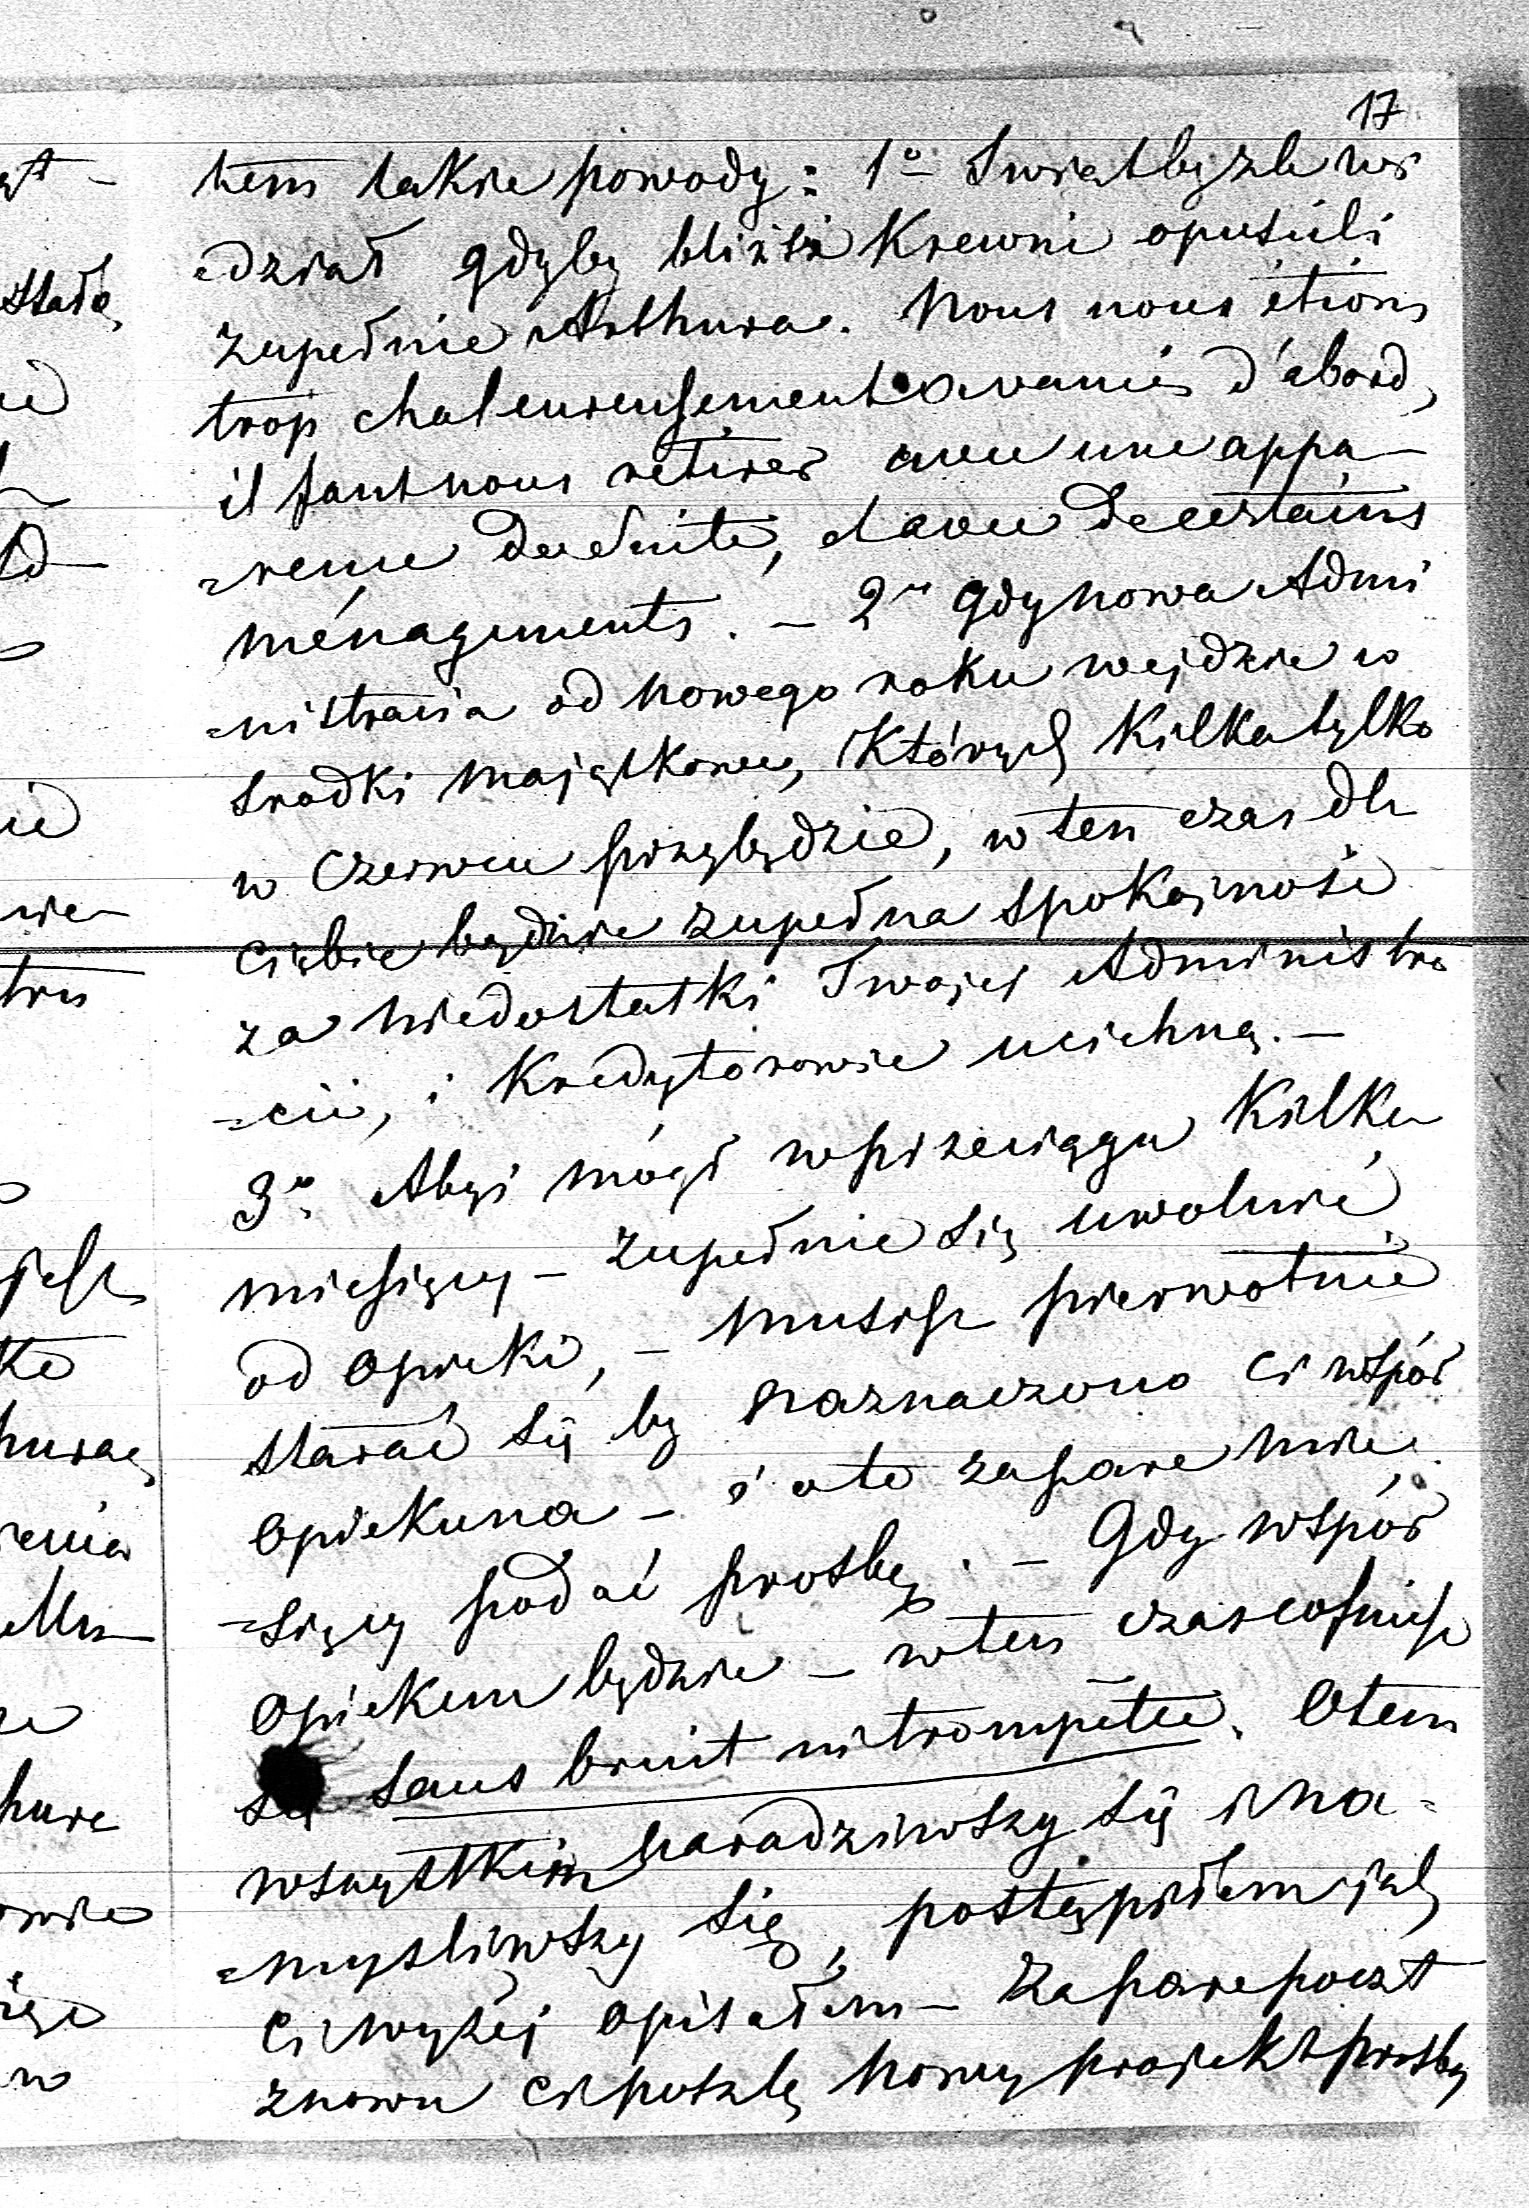 17
tem takie powody: 1° Swiat by zle wi
=dział gdyby bliżsi Krewni opuścili
zupełnie Arthura. Nous nous étions
trop chaleureusement avancés d'abord,
il faut nous retirer avec une appa-
=rence de suite, et avec de certains
ménagements. - 2° gdy nowa Admi
=nistracia od nowego roku wejdzie w
srodki majątkowe, których kilka tylko
w Czerwcu przybędzie, w ten czas dla
ciebie będzie zupełna spokojność
za niedostatki Twojej Administra
=cii, i Kredytorowie ucichną. -
3° Abyś mógł w przeciągu kilku
miesięcy - zupełnie się uwolnić
od opieki, - musisz pierwotnie
starać się by naznaczono ci współ
opiekuna - i o to za parę mie
=sięcy podać prosbę. - Gdy współ
opiekun będzie - w ten czas cofniesz
się sans bruit ni trompette. O tem
wszystkim naradziwszy się i na=
=mysliwszy się, postąpiłem jak
ci wyżej opisałem - Za parę poczt
znowu ci poszlę nowy projekt prosby